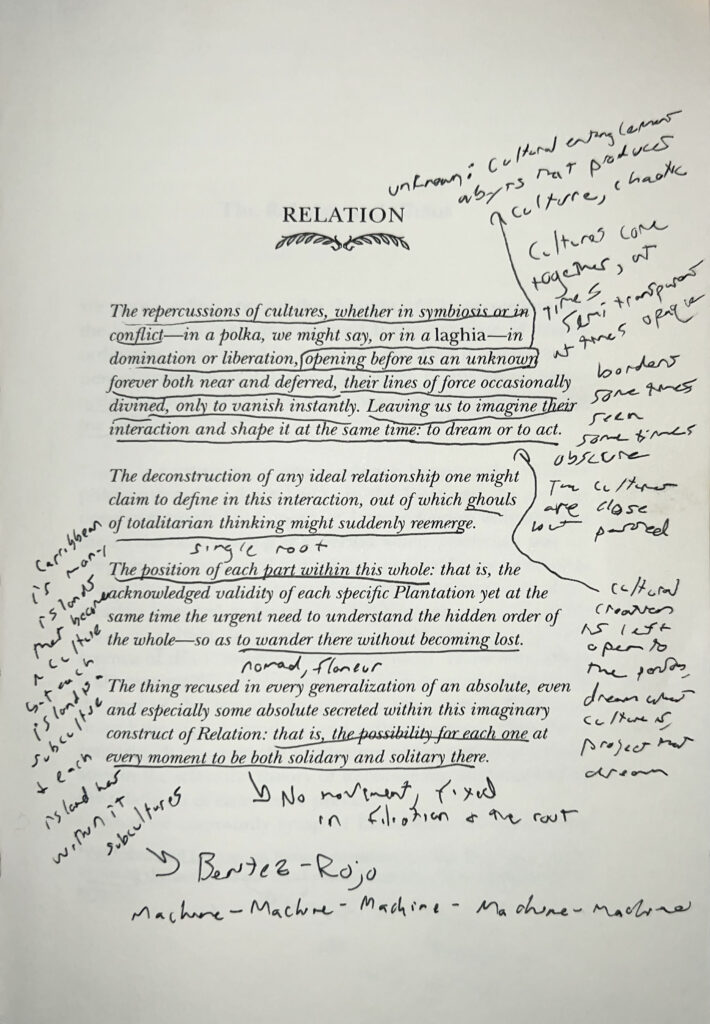 unknown: cultural entanglement
abyss that produces
culture, chaotic
RELATION
Cultures come
together, at
times
semi transparent
at times opaque
borders
some times
seen
some times
obscure
The cultures
are close
but passed
The repercussions of cultures, whether in symbiosis or in
conflict—in a polka, we might say, or in a laghia—in
domination or liberation, opening before us an unknown
forever both near and deferred, their lines of force occasionally
divined, only to vanish instantly. Leaving us to imagine their
interaction and shape it at the same time: to dream or to act.
The deconstruction of any ideal relationship one might
claim to define in this interaction, out of which ghouls
of totalitarian thinking might suddenly reemerge.
single root
The position of each part within this whole: that is, the
acknowledged validity of each specific Plantation yet at the
same time the urgent need to understand the hidden order of
the whole—so as to wander there without becoming lost.
nomad, flaneur
The thing recused in every generalization of an absolute, even
and especially some absolute secreted within this imaginary
construct of Relation: that is, the possibility for each one at
every moment to be both solidary and solitary there.
Carribbean
is many
islands
that become
a culture
but each
island is a
subculture
+ each
island has
within it
subcultures
cultural
creation
is left
open to
the poets,
dream what
culture is,
project that
dream
No movement, fixed
in filiation & the root
Bentez-Rojo
Machine-Machine-Machine-Machine-Machine